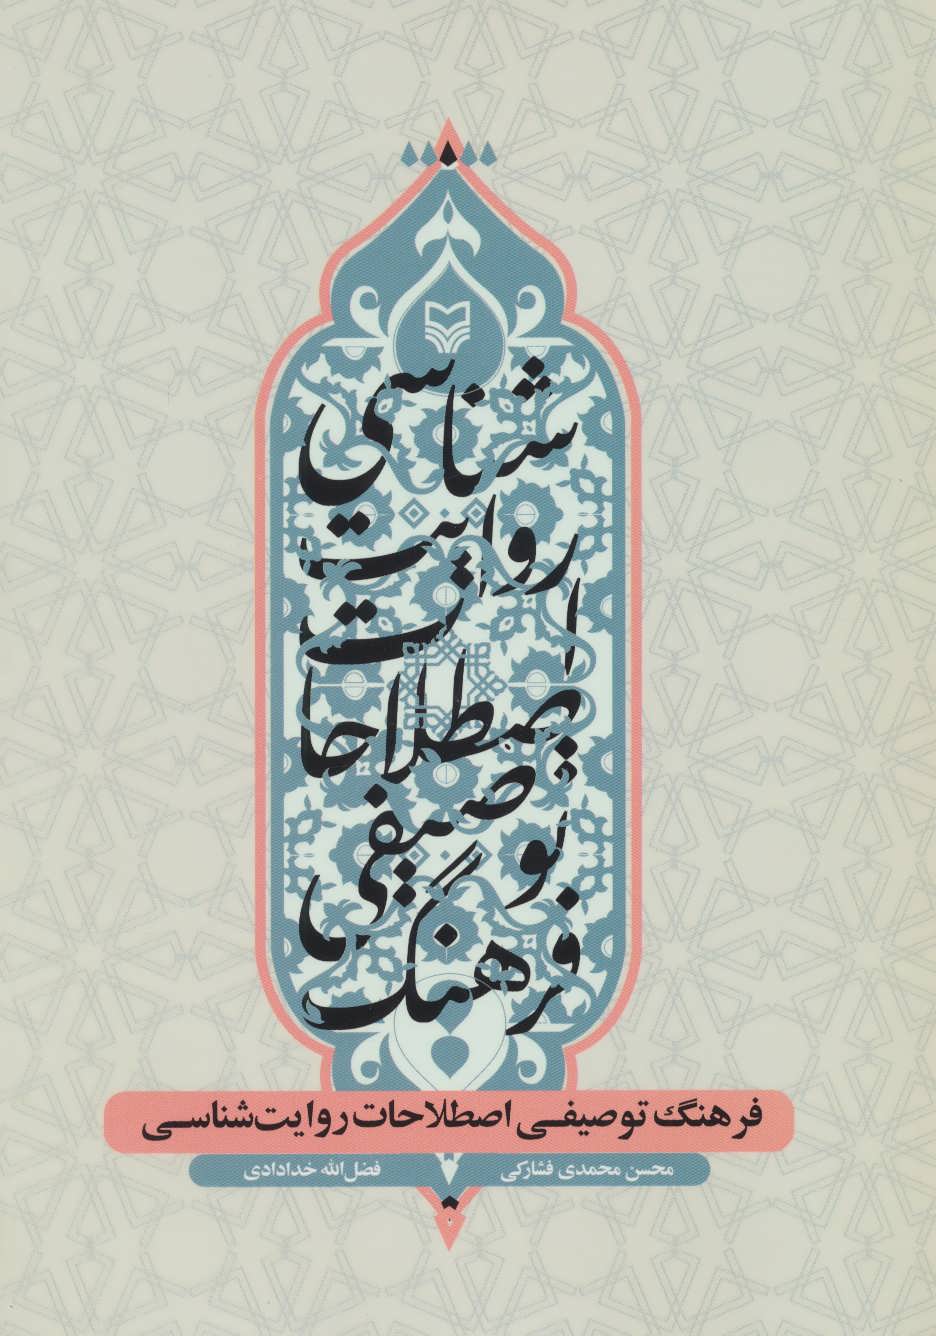 شناسی
روایت
اصطلاحات
توصیفی
فرهنگ
فرهنگ توصیفی اصطلاحات روایت‌شناسی
محسن محمدی فشارکی
فضل‌الله خدادادی